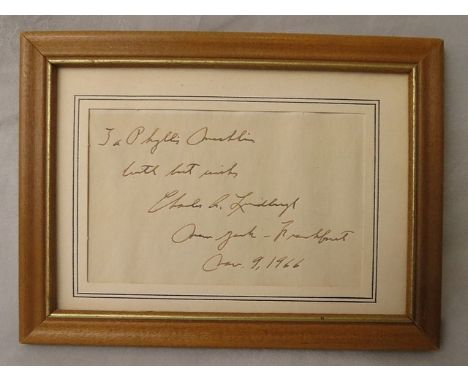 To Phyllis
with best wishes
Charles A. Lindbergh
New York - Frankfurt
Nov. 9, 1966